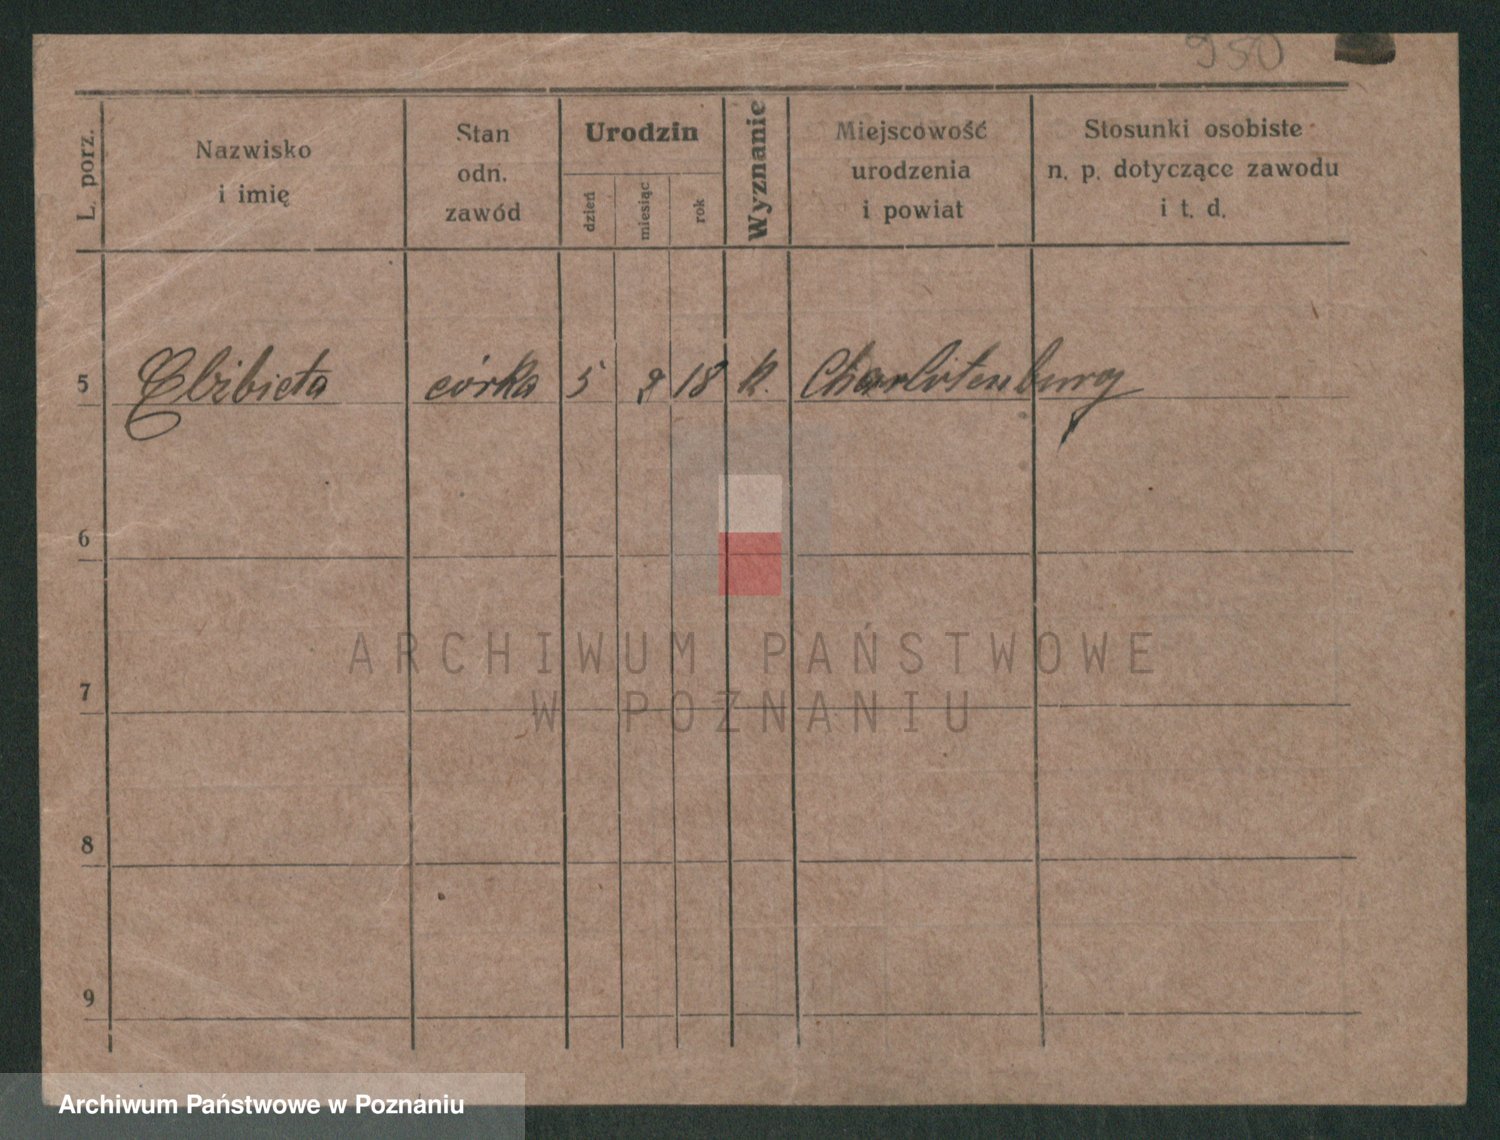 950
L. porz.
Nazwisko
i imię
Stan
odn.
zawód
Urodzin
dzień
miesiąc
rok
Wyznanie
Miejscowość
urodzenia
i powiat
Stosunki osobiste
n. p. dotyczące zawodu
i t. d.
5 Elżbieta córka 5 8 18 k. Charlottenburg
6
7
8
9
ARCHIWUM PAŃSTWOWE
W POZNANIU
Archiwum Państwowe w Poznaniu